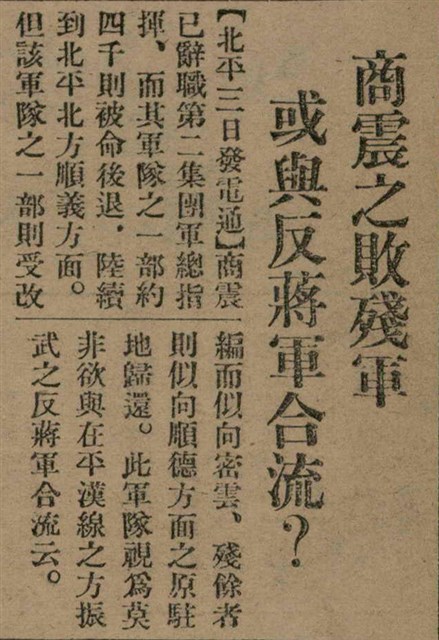 商震之敗殘軍
或與反蔣軍合流？
【北平三日發電通】商震
已辭職第二集團軍總指
揮、而其軍隊之一部約
四千則被命後退、陸續
到北平北方順義方面。
但該軍隊之一部則受改
編而似向密雲、殘餘者
則似向順德方面之原駐
地歸還。此軍隊視爲莫
非欲與在平漢線之方振
武之反蔣軍合流云。